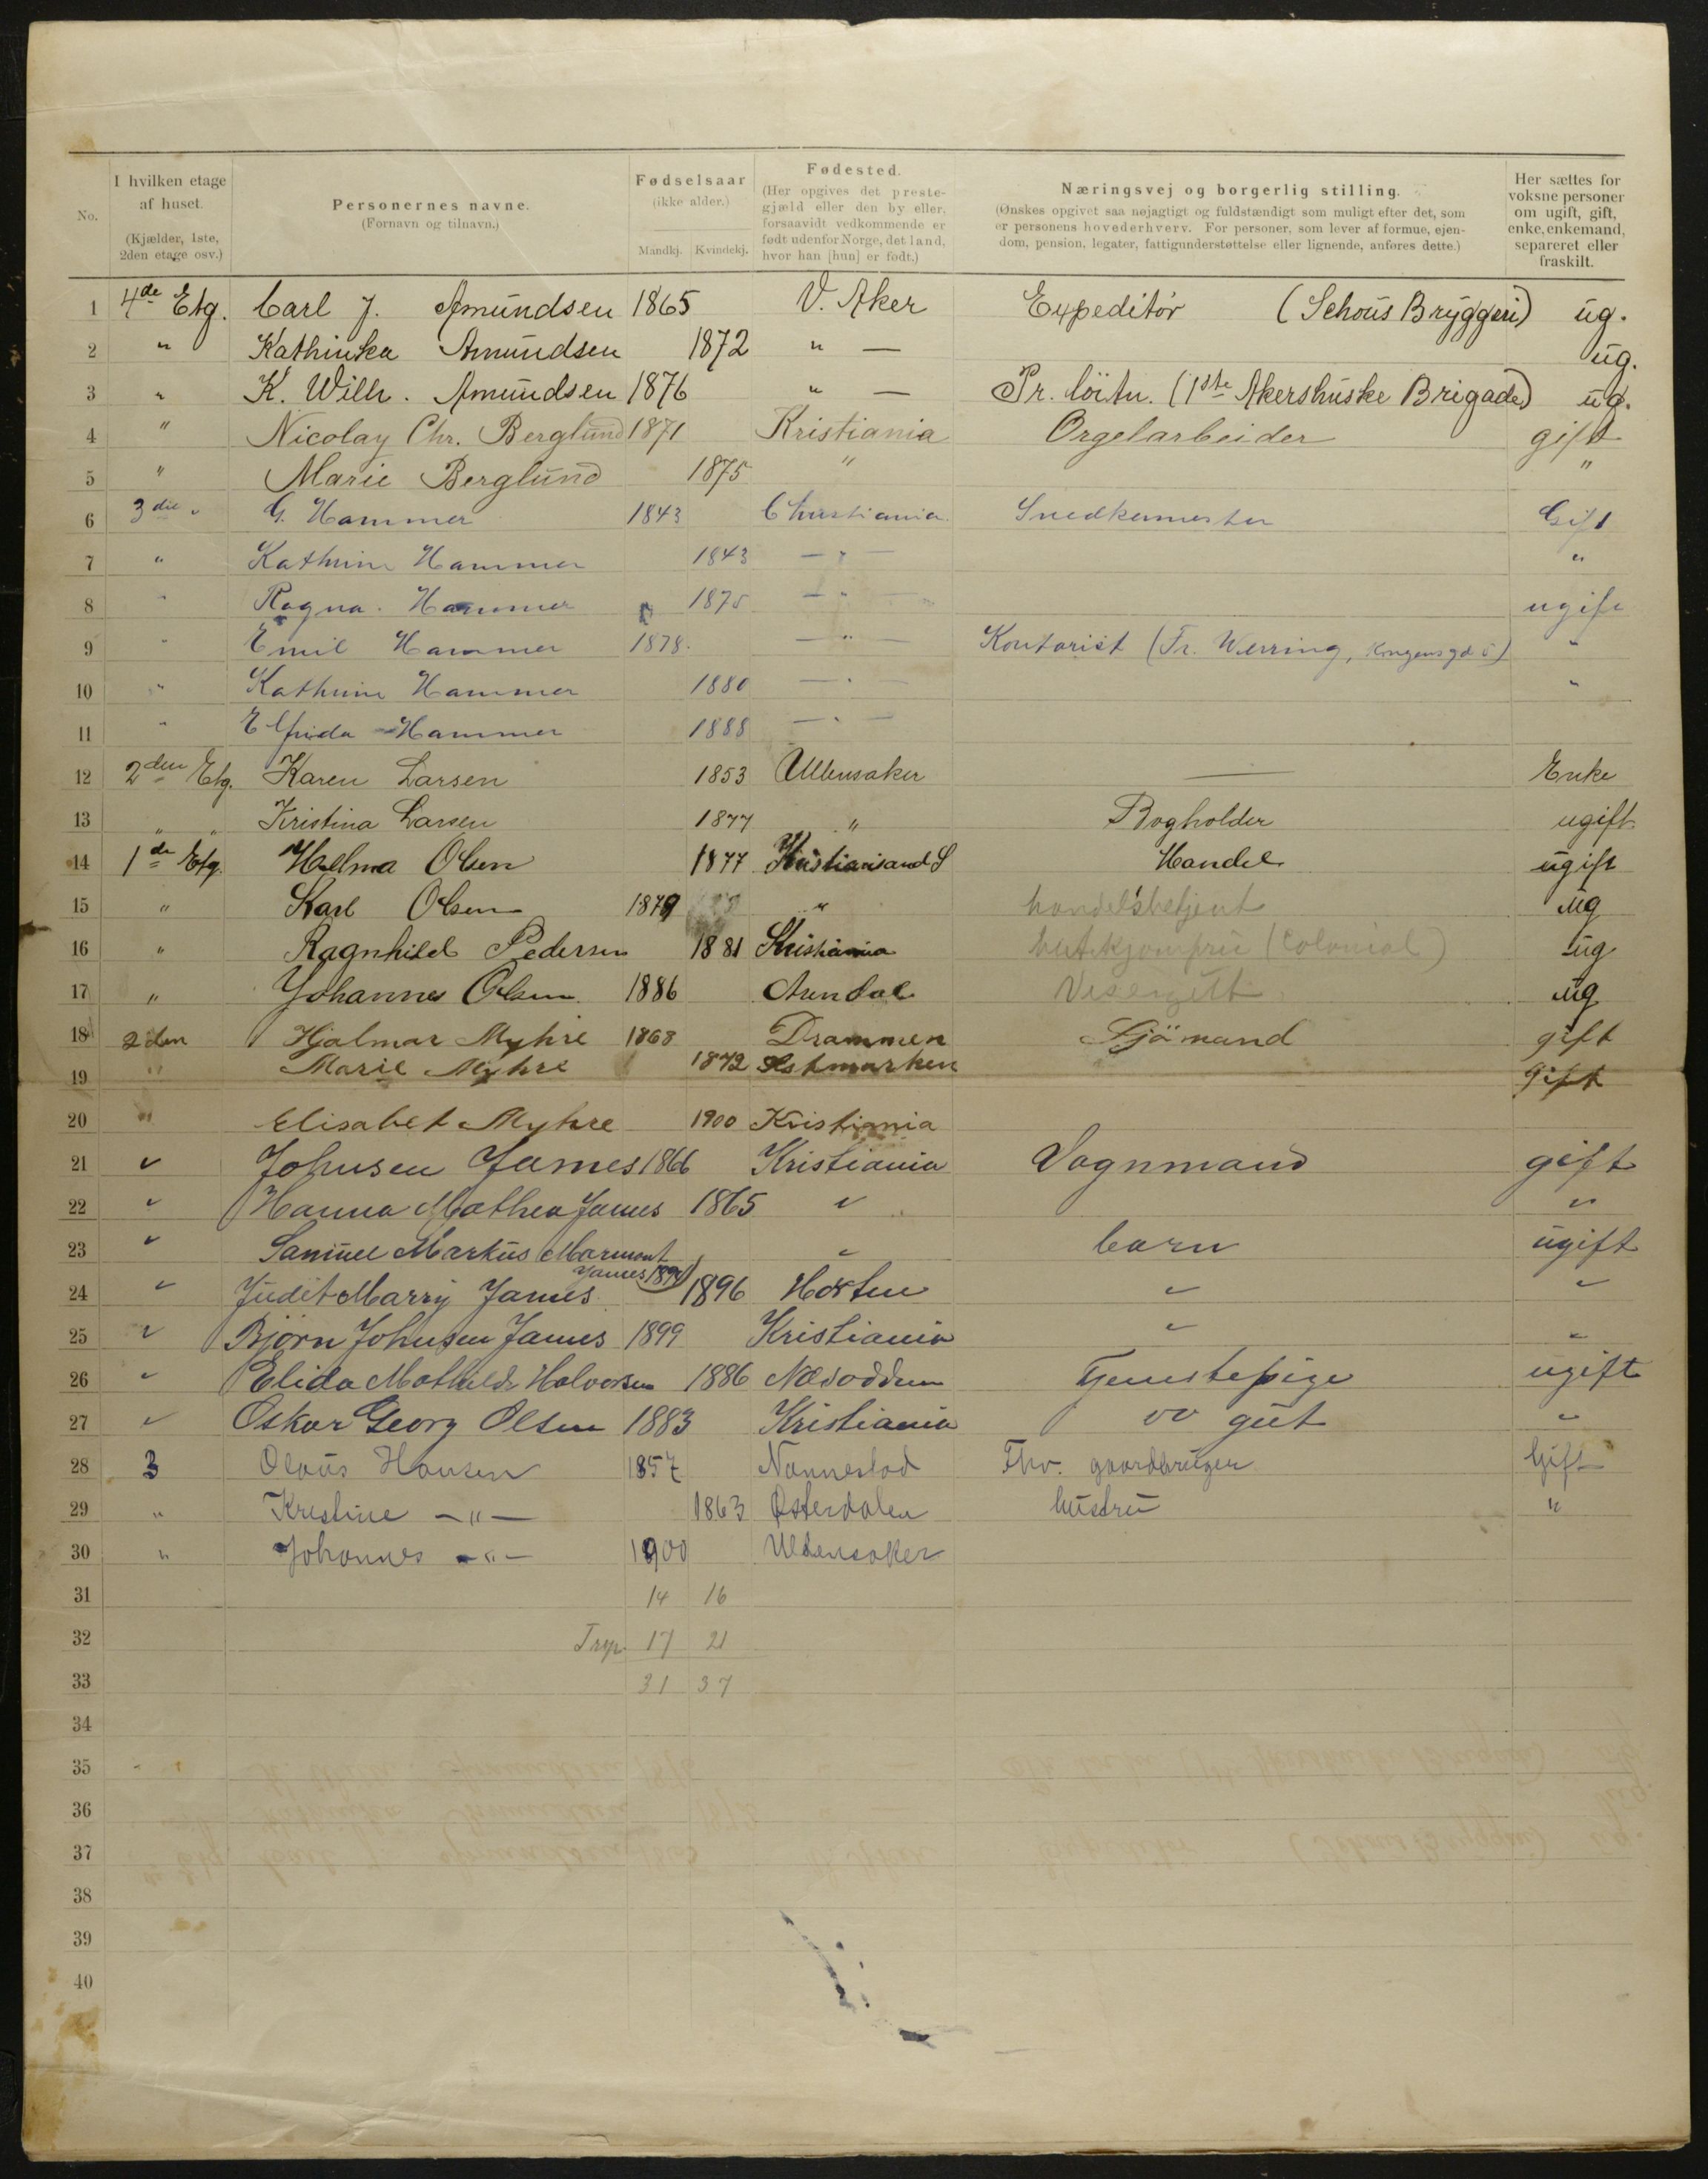 No.
I hvilken etage af huset. (Kjælder, 1ste, 2den etage osv.)
Personernes navne. (Fornavn og tilnavn.)
Fødselsaar (ikke alder.) Mandkj. Kvindekj.
Fødested. (Her opgives det prestegjæld eller den by eller, forsaavidt vedkommende er født udenfor Norge, det land, hvor han [hun] er født.)
Næringsvej og borgerlig stilling. (Ønskes opgivet saa nøjagtigt og fuldstændigt som muligt efter det, som er personens hovederhverv. For personer, som lever af formue, ejendom, pension, legater, fattigunderstøttelse eller lignende, anføres dette.)
Her sættes for voksne personer om ugift, gift, enke, enkemand, separeret eller fraskilt.
1 4de Etg. Carl J. Amundsen 1865 V. Aker Expeditör (Schous Bryggeri) ug.
2 " Kathinka Amundsen 1872 " — ug.
3 " K. Wilh. Amundsen 1876 " — Pr. löitn. (1ste Akershuske Brigade) ug.
4 " Nicolay Chr. Berglund 1871 Kristiania Orgelarbeider gift
5 " Marie Berglund 1875 " "
6 3die " G. Hammer 1843 Christiania Snedkermester Gift
7 " Kathrine Hammer 1843 — " — "
8 " Ragna Hammer 1875 — " — ugift
9 " Emil Hammer 1878. — " — Kontorist (Fr. Werring, Kongensgd 5) "
10 " Kathrine Hammer 1880 — " — "
11 " Elfrida Hammer 1888 — " —
12 2den Etg. Karen Larsen 1853 Ullensaker — Enke
13 " " Kristina Larsen 1877 " Bogholder ugift
14 1de Etg. Helma Olsen 1877 Kristiansand S Handel ugift
15 " Karl Olsen 1879 " handelsbetjent ug
16 " Ragnhild Pedersen 1881 Kristiania butikjomfru (Colonial) ug
17 " Johannes Olsen 1886 Arendal Visergut ug
18 2den Hjalmar Myhre 1868 Drammen Sjömand gift
19 " Marie Myhre 1872 Østmarken gift
20 " Elisabet Myhre 1900 Kristiania
21 " Johnsen James 1866 Kristiania Vognmand gift
22 " Hanna Mathea James 1865 " "
23 " Samuel Markus Marmont James " barn ugift
24 " Judit Marry James 1896 Horten " "
25 " Bjørn Johnsen James 1899 Kristiania " "
26 " Elida Mathilde Halvorsen 1886 Næsodden Tjenstepige ugift
27 " Oskar Georg Olsen 1883 Kristiania " gut "
28 3 Olaus Hansen 1857 Nannestad Fhv. gaardbruger Gift
29 " Kristine —"— 1863 Østerdalen hustru "
30 " Johannes —"— 1900 Ullensaker
31 14 16
32 Tryp. 17 21
33 31 37
34
35
36
37
38
39
40